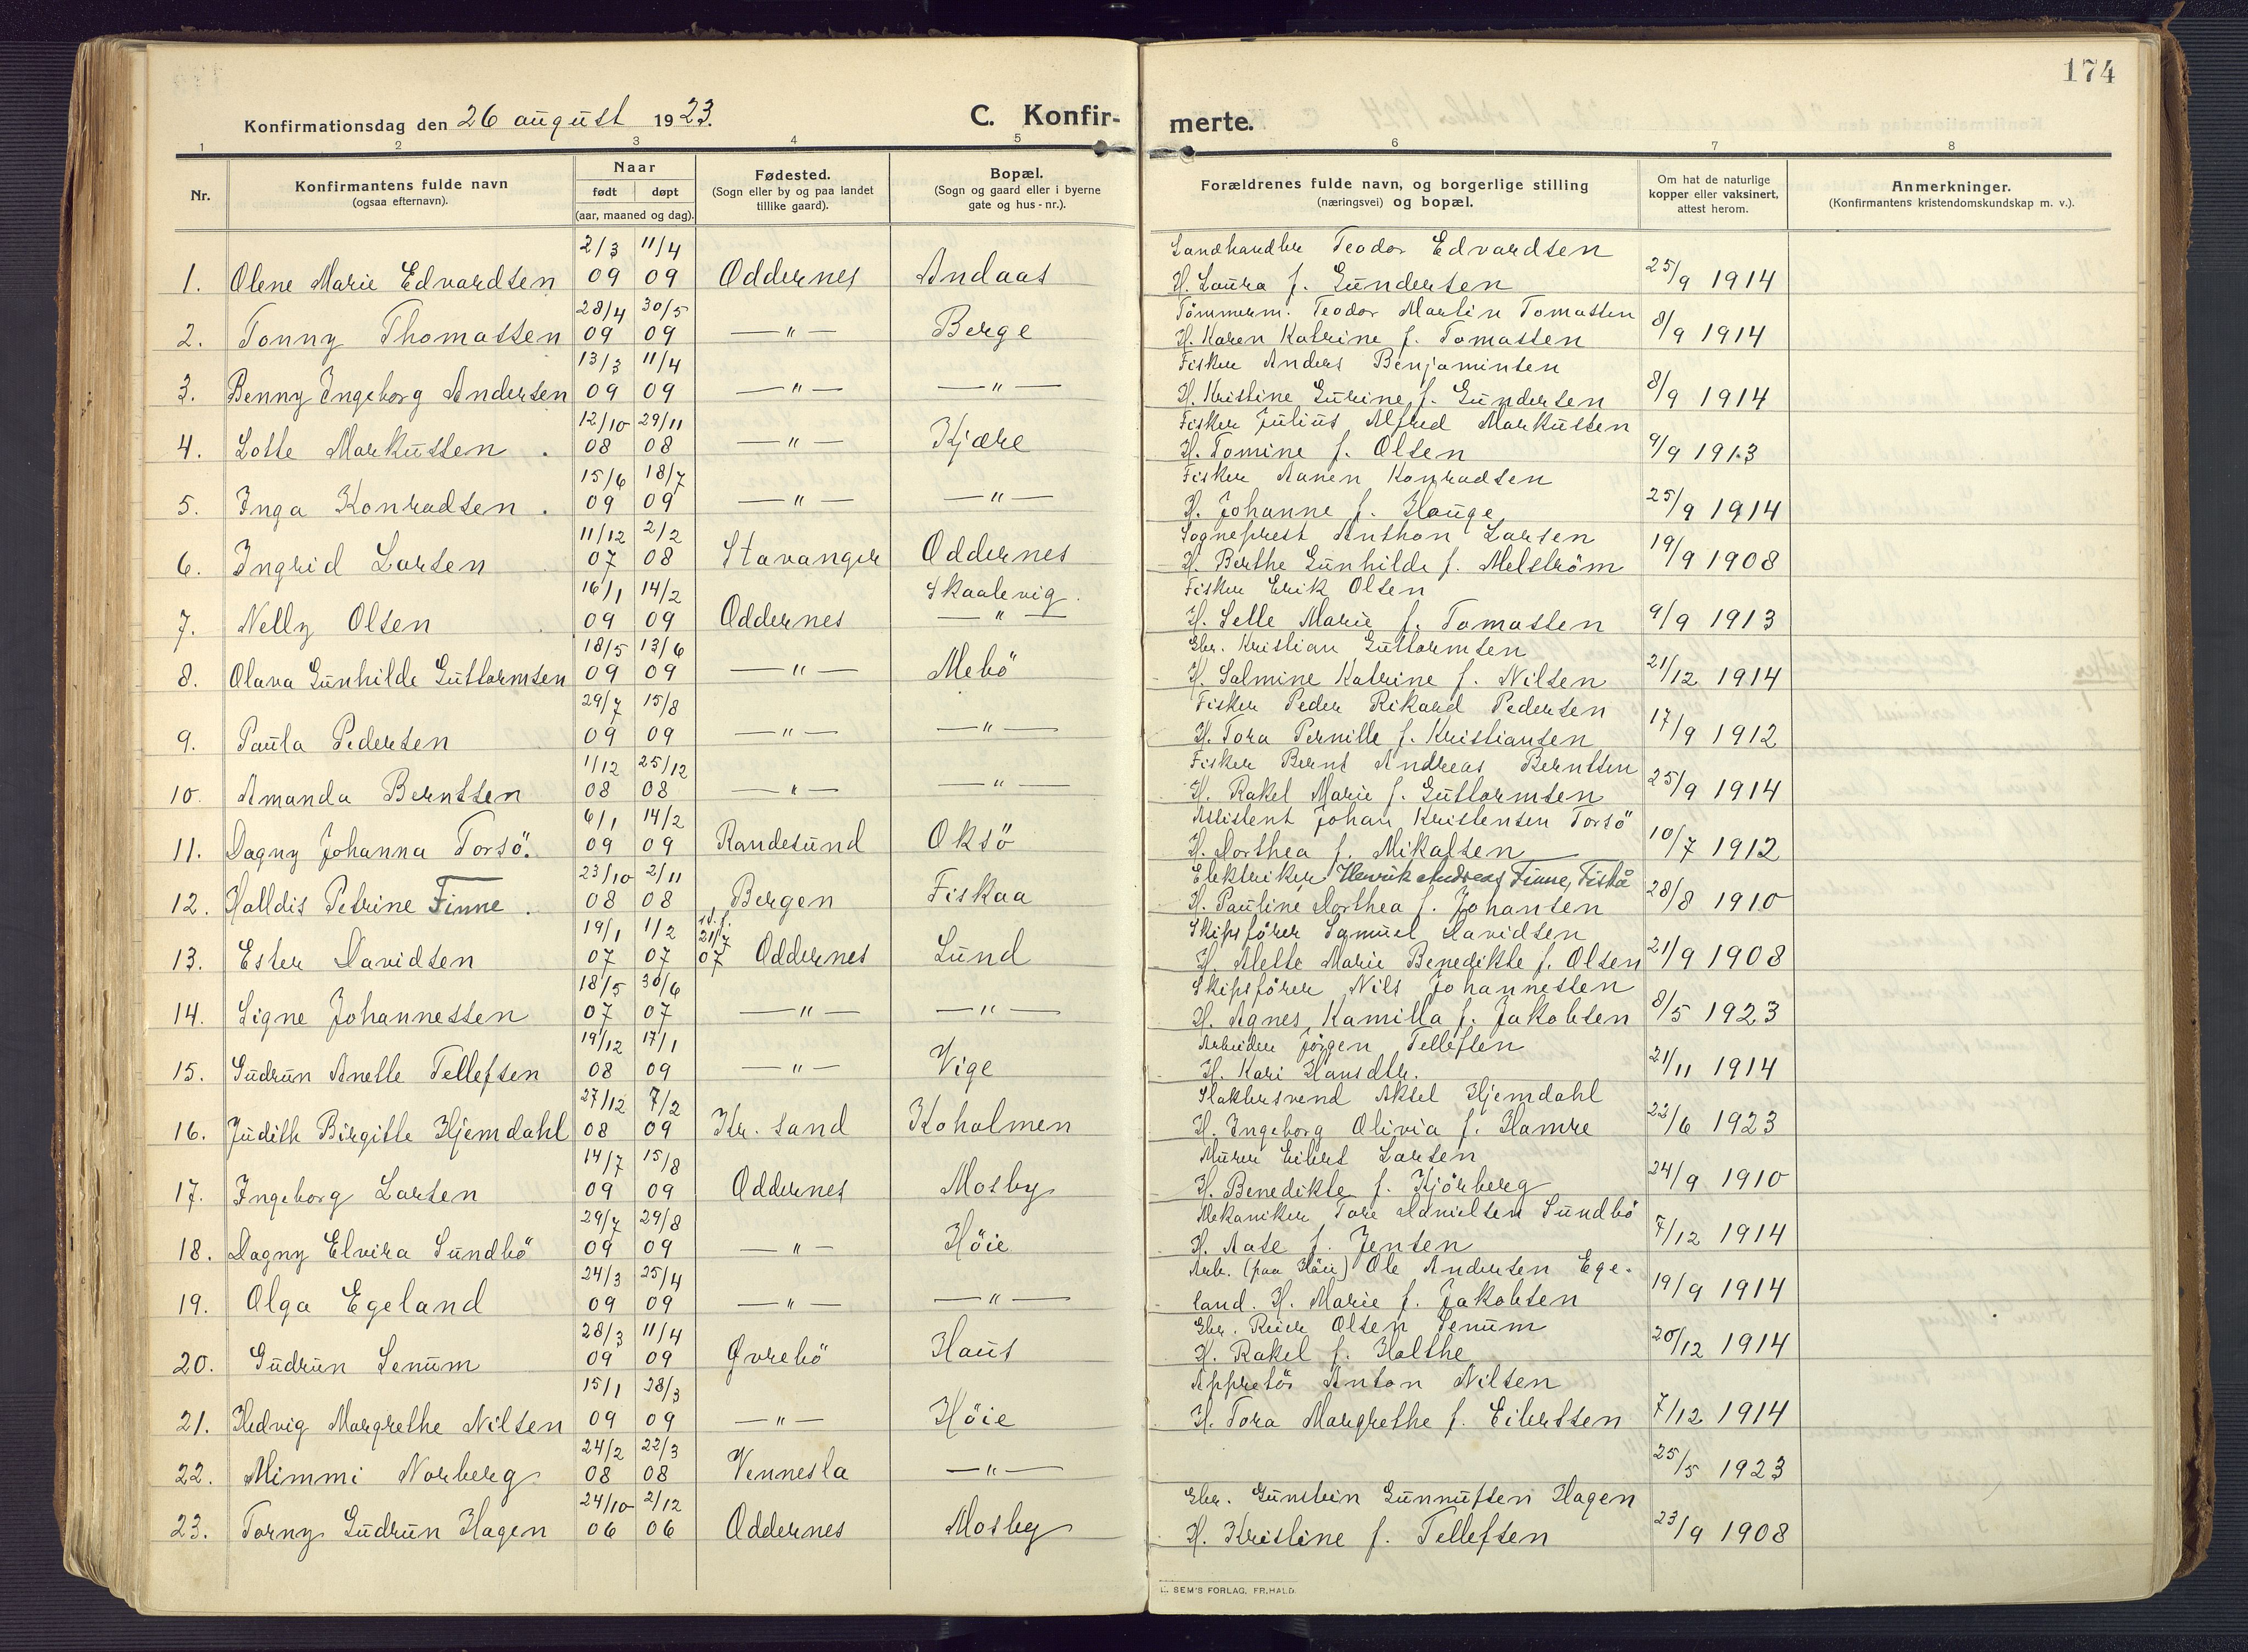 174
Konfirmationsdag den 26 august 1923.
C. Konfirmerte.
1 2 3 4 5 6 7 8
Nr.
Konfirmantens fulde navn
(ogsaa efternavn).
Naar
født døpt
(aar, maaned og dag).
Fødested.
(Sogn eller by og paa landet
tillike gaard).
Bopæl.
(Sogn og gaard eller i byerne
gate og hus-nr.).
Forældrenes fulde navn, og borgerlige stilling
(næringsvei) og bopæl.
Om hat de naturlige
kopper eller vaksinert,
attest herom.
Anmerkninger.
(Konfirmantens kristendomskundskap m. v.).
2/3 11/4 Landhandler Teodor Edvardsen
1. Olene Marie Edvardsen 09 09 Oddernes Andaas H. Laura f. Gundersen 25/9 1914
28/4 30/5 Tömmerm. Teodor Martin Tomassen
2. Tonny Thomassen 09 09 —"— Berge H. Karen Katrine f. Tomassen 8/9 1914
13/3 11/4 Fisker Anders Benjaminsen
3. Benny Ingeborg Andersen 09 09 —"— —"— H. Kristine Gurine f. Gundersen 8/9 1914
12/10 29/11 Fisker Julius Alfred Markussen
4. Lotte Markussen. 08 08 —"— Kjære H. Tomine f. Olsen 9/9 1913
15/6 18/7 Fisker Aanen Konradsen
5. Inga Konradsen. 09 09 —"— —"— H. Johanne f. Hauge 25/9 1914
11/12 2/2 Sogneprest Anthon Larsen
6. Ingrid Larsen 07 08 Stavanger Oddernes H. Berthe Gunhilde f. Melström 19/9 1908
16/1 14/2 Skaalevig. Fisker Erik Olsen
7. Nelly Olsen 09 09 Oddernes —"— H. Selle Marie f. Tomassen 9/9 1913
18/5 13/6 Gbr. Kristian Guttormsen
8. Olava Gunhilde Guttormsen 09 09 —"— Mebö H. Salmine Katrine f. Nilsen 21/12 1914
29/7 15/8 Fisker Peder Rikard Pedersen
9. Paula Pedersen 09 09 —"— —"— H. Tora Pernille f. Kristiansen 17/9 1912
1/12 25/12 Fisker Bernt Andreas Berntsen
10. Amanda Berntsen 08 08 —"— —"— H. Rakel Marie f. Guttormsen 25/9 1914
6/1 14/2 Assistent Johan Kristensen Torsö
11. Dagny Johanna Torsö. 09 09 Randesund Oksö H. Dorthea f. Mikalsen 10/7 1912
23/10 2/11 Elektriker Henrik Andreas Finne, Fiskå
12. Halldis Petrine Finne. 08 08 Bergen Fiskaa H. Pauline Dorthea f. Johansen 28/8 1910
19/1 1/2 21/7 Skipsförer Samuel Davidsen
13. Ester Davidsen 07 07 07 Oddernes Lund H. Alette Marie Benedikte f. Olsen 21/9 1908
18/5 30/6 Skipsförer Nils Johannessen
14. Signe Johannessen 07 07 —"— —"— H. Agnes Kamilla f. Jakobsen 8/5 1923
19/12 17/1 Arbeider Jörgen Tellefsen
15. Gudrun Anette Tellefsen 08 09 —"— Vige H. Kari Hansdtr. 21/11 1914
27/12 7/2 Slaktersvend Aksel Hjemdahl
16. Judith Birgitte Hjemdahl 08 09 Kr. sand Koholmen H. Ingeborg Olivia f. Hamre 22/6 1923
14/7 15/8 Murer Eilert Larsen
17. Ingeborg Larsen 09 09 Oddernes Mosby H. Benedikte f. Kjörberg 24/9 1910
29/7 29/8 Mekaniker Tore Danielsen Sundbö
18. Dagny Elvira Sundbö 09 09 —"— Höie H. Aase f. Jensen 7/12 1914
24/3 25/4 Arb. (paa Höie) Ole Andersen Ege-
19. Olga Egeland 09 09 —"— —"— land. H. Marie f. Jakobsen 19/9 1914
28/3 11/4 Gbr. Reier Olsen Senum
20. Gudrun Senum 09 09 Øvrebö Haus H. Rakel f. Holthe 20/12 1914
15/1 28/3 Appretör Anton Nilsen
21. Hedvig Margrethe Nilsen 09 09 —"— Höie H. Tora Margrethe f. Eilertsen 7/12 1914
24/2 22/3
22. Mimmi Norberg 08 08 Vennesla —"— 25/5 1923
24/10 2/12 Gbr. Gunstein Gunnufsen Hagen
23. Torny Gudrun Hagen 06 06 Oddernes Mosby H. Kristine f. Tellefsen 23/9 1908
E. SEM'S FORLAG, FR.HALD.